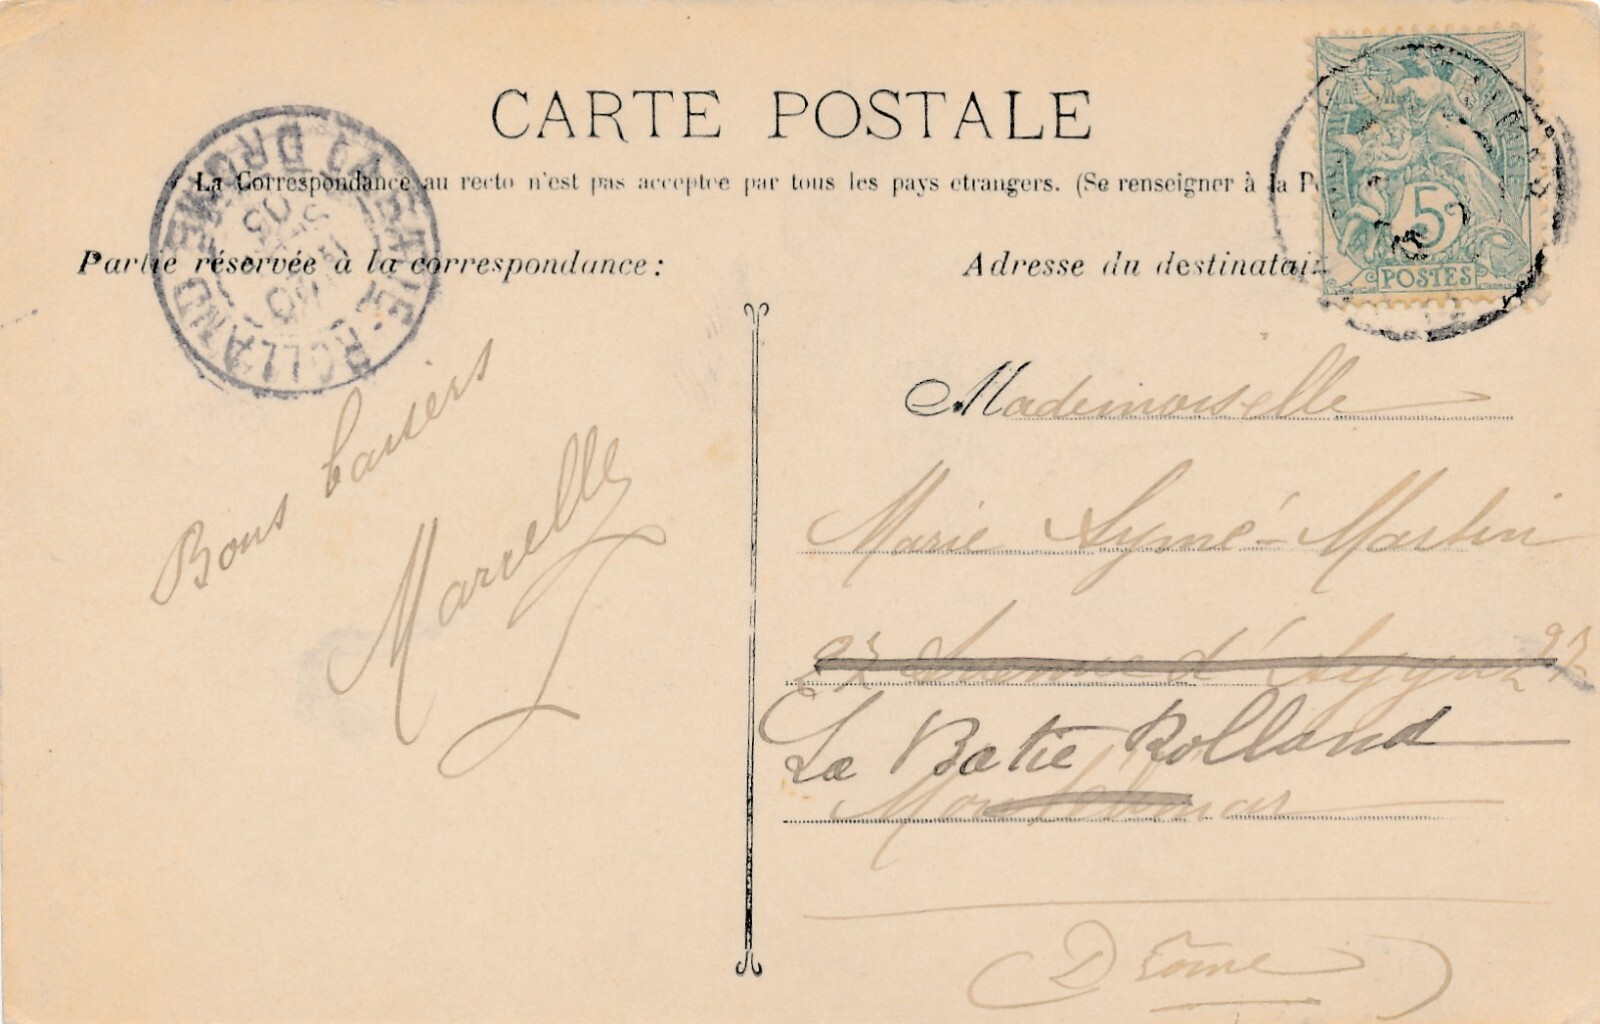 CARTE POSTALE
La Correspondance au recto n'est pas acceptée par tous les pays étrangers. (Se renseigner à la P
Partie réservée à la correspondance:
Adresse du destinatai
LA BATIE-ROLLAND
DROME
5
POSTES
Bons baisers
Marcelle
Mademoiselle
Marie Aymé-Martin
23 Avenue d'Aygu 23
La Batie Rolland
Montelimar
(Drôme)